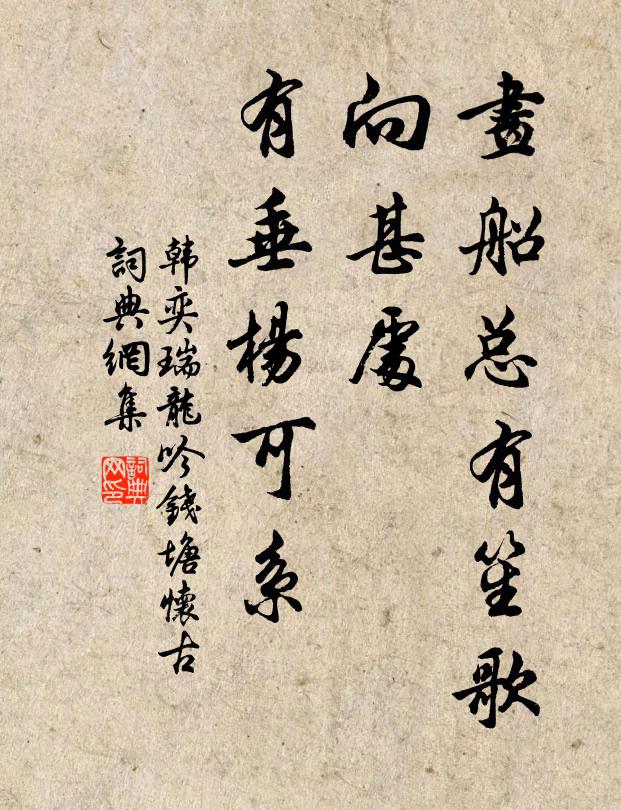 畫船总有笙歌
向甚處
有垂楊可系
韩奕瑞龍吟錢塘懷古
詞典網集
詞典网印